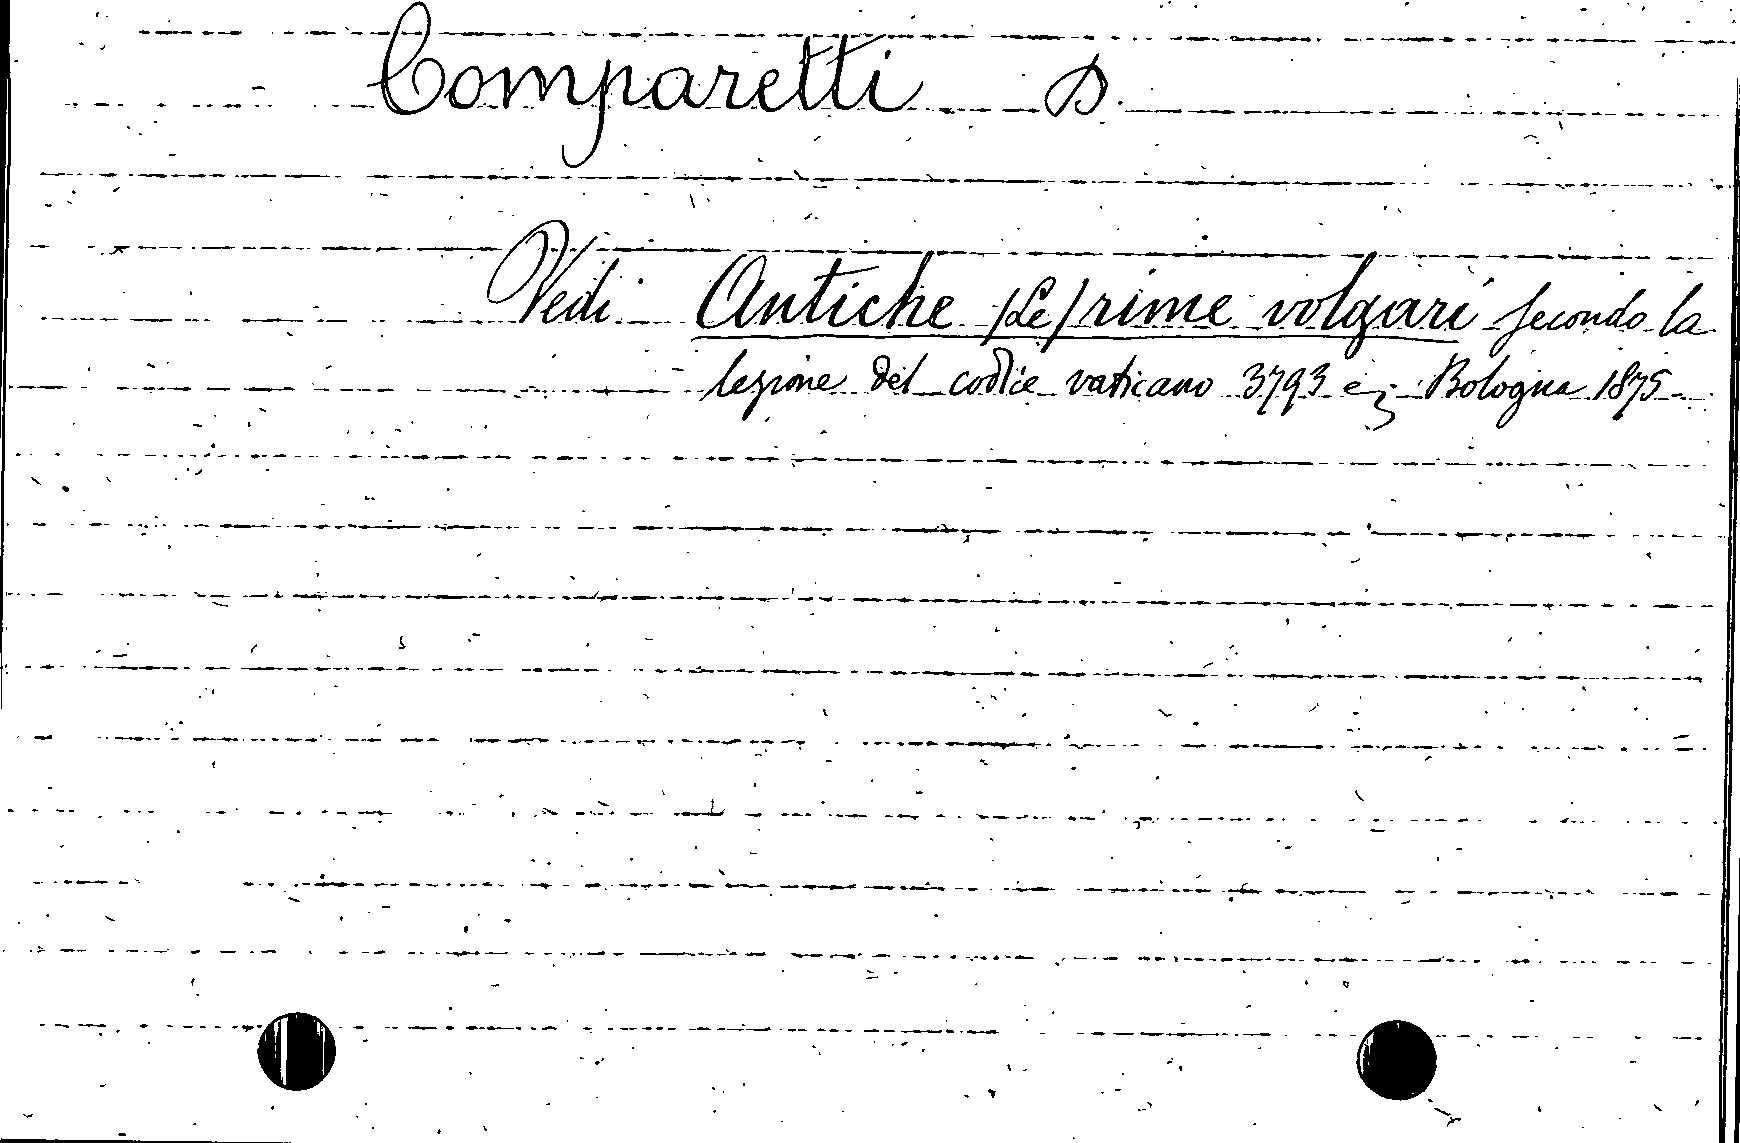 Comparetti D.
Vedi Antiche (Le) rime volgari secondo la
lezione del codice vaticano 3793 Bologna 1875